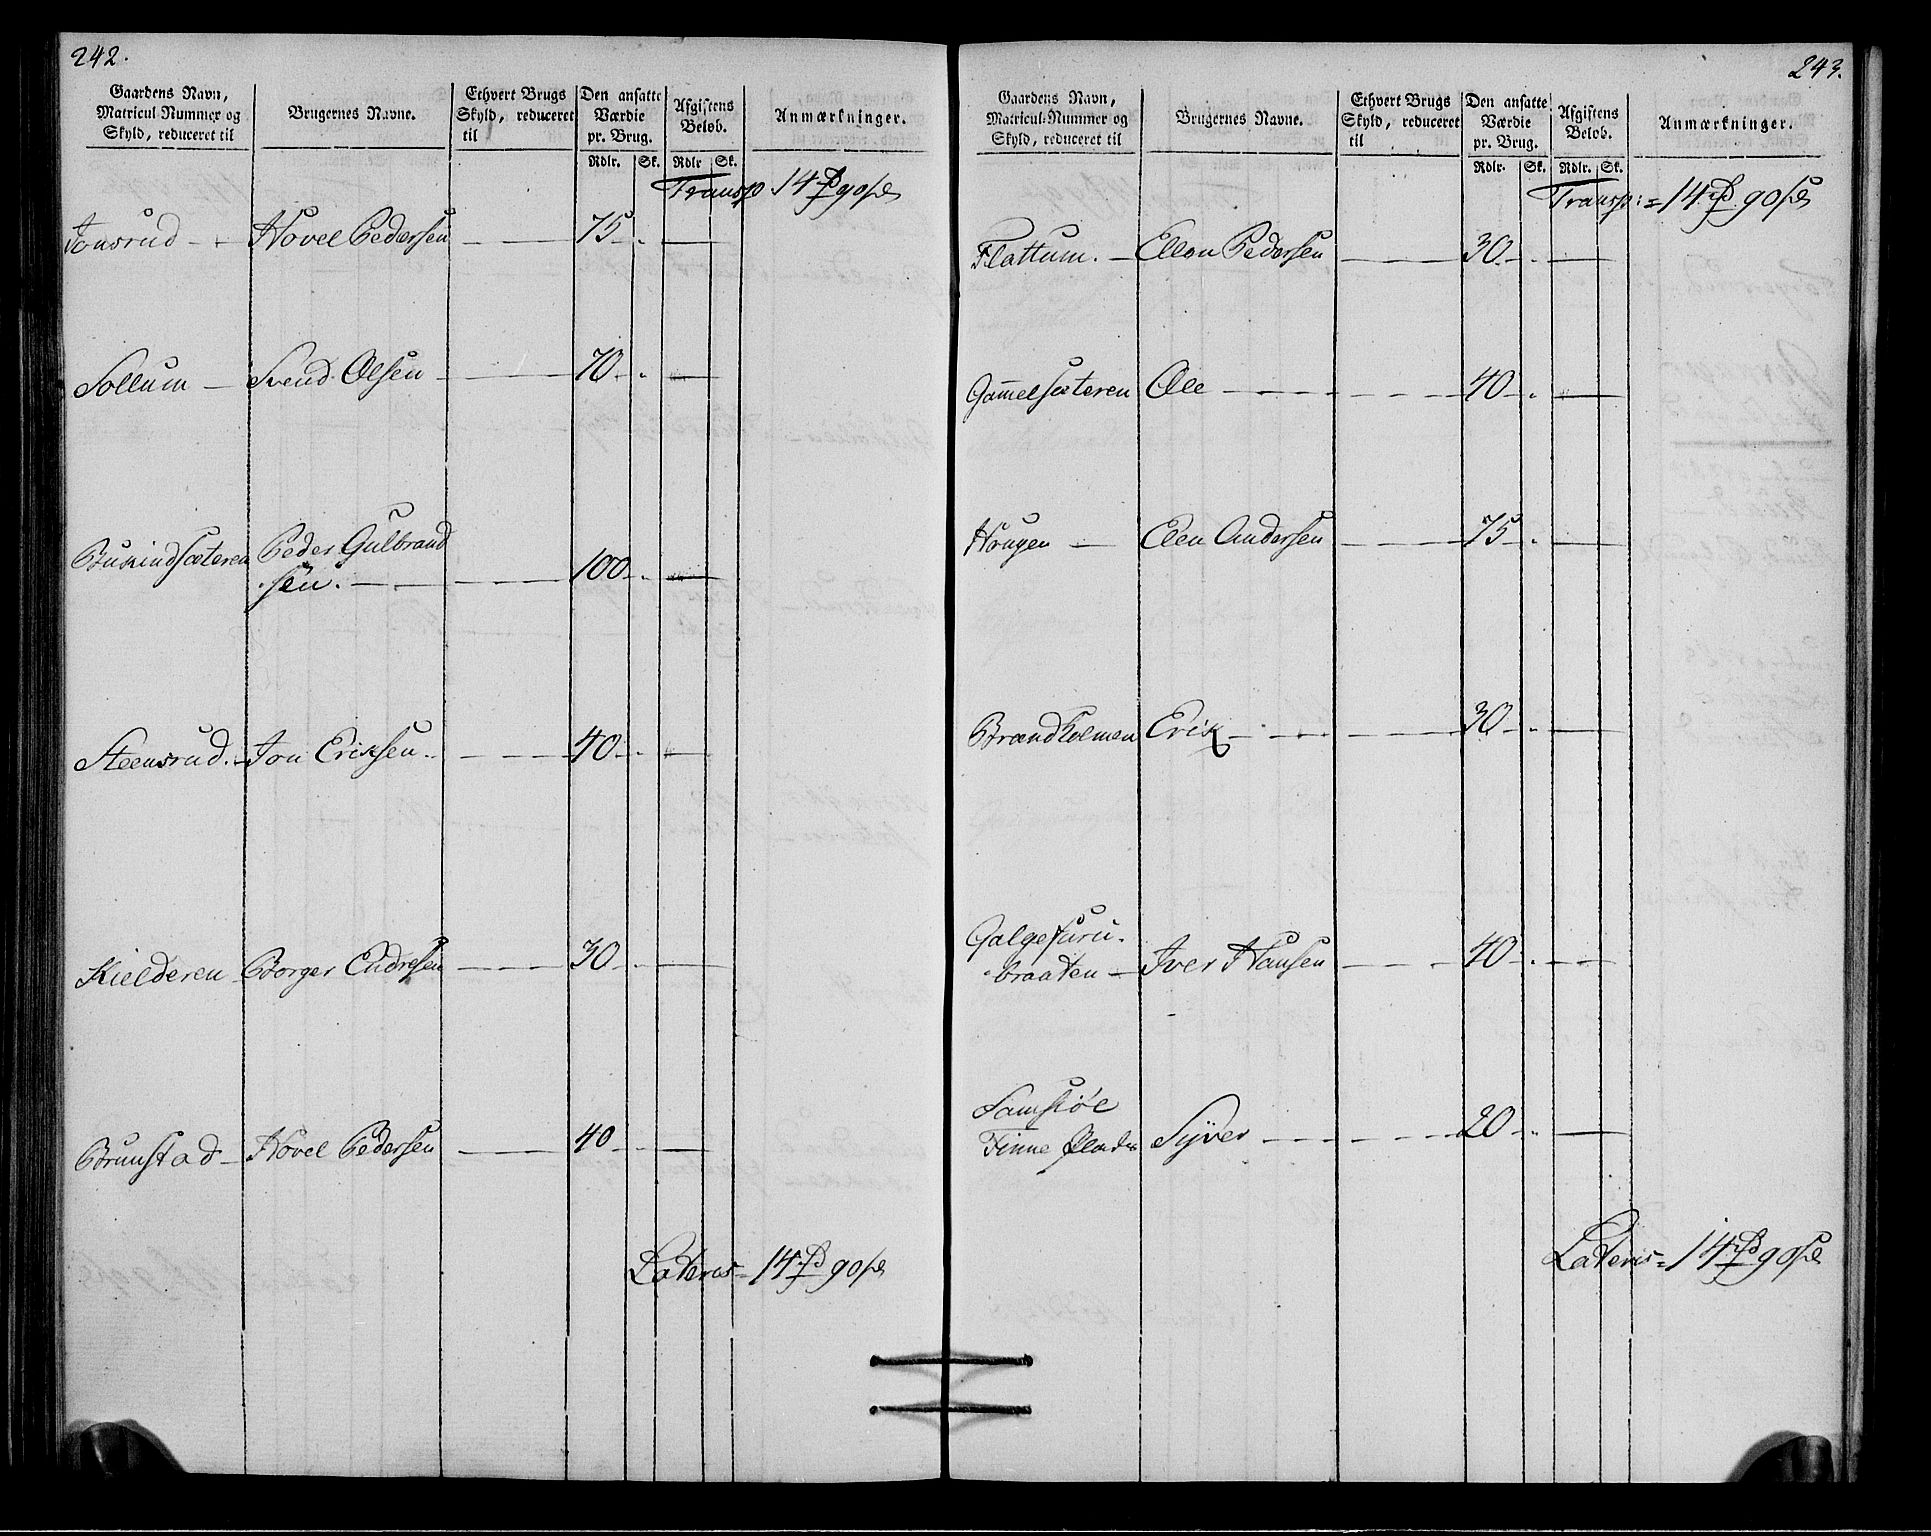 242.
Gaardens Navn, Matricul Nummer og Skyld, reduceret til
Brugernes Navne.
Ethvert Brugs Skyld, reduceret til
Den ansatte Værdie pr. Brug.
Afgiftens Beløb.
Anmærkninger.
Rdlr. Sk. Rdlr Sk.
Transp 14 90
Jonsrud - Hovel Pedersen 75
Sollum - Svend Olsen 70
Peder Gulbrand
Busundsæteren sen. 100
Steensrud. Jon Eriksen 40
Kielderen Borger Endresen 30
Brunstad Hovel Pedersen 40
Lateris = 14 90
243.
Gaardens Navn, Matricul-Nummer og Skyld, reduceret til
Brugernes Navne.
Ethvert Brugs Skyld, reduceret til
Den ansatte Værdie pr. Brug.
Afgiftens Beløb.
Anmærkninger.
Rdlr. Sk. Rdlr. Sk.
Transp: = 14 90
Flattum. - Ellen Pedersen 30
Gam̄elsæteren Ole 40
Hougen - Elen Andersen 75
Brændholmen Erik 30
Galgefuru
braaten - Iver Hansen 40
Samsiøe
Finne Sÿver 20
Lateris = 14 90